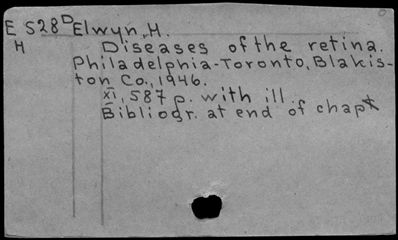 E S28ᴰ Elwyn, H.
H Diseases of the retina.
Philadelphia-Toronto, Blakis-
ton Co., 1946.
XI, 587 p. with ill.
Bibliogr. at end of chapt